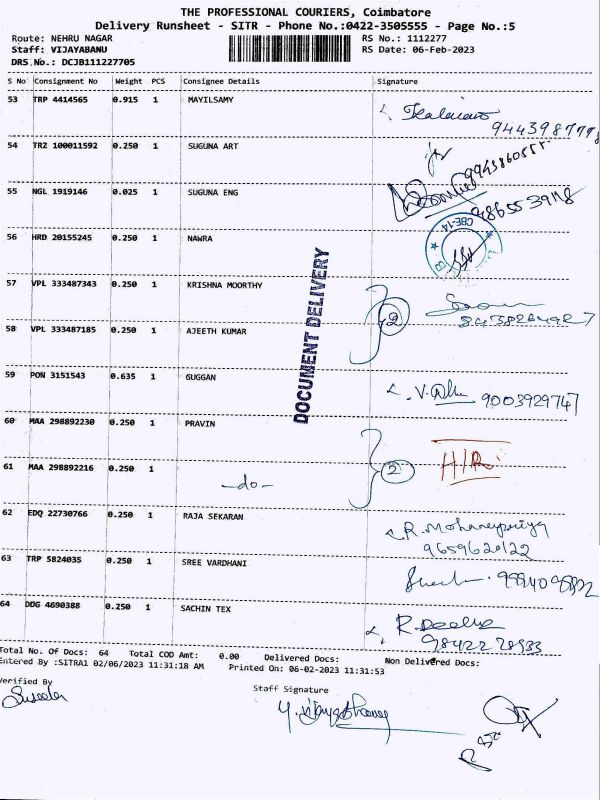 THE PROFESSIONAL COURIERS, Coimbatore
Delivery Runsheet - SITR - Phone No.:0422-3505555 - Page No.:5
Route: NEHRU NAGAR RS No.: 1112277
Staff: VIJAYABANU RS Date: 06-Feb-2023
DRS.No.: DCJB111227705
S No Consignment No Weight PCS Consignee Details Signature
53 TRP 4414565 0.915 1 MAYILSAMY
54 TRZ 100011592 0.250 1 SUGUNA ART
55 NGL 1919146 0.025 1 SUGUNA ENG
CBE-14
56 HRD 20155245 0.250 1 NAWRA
DOCUMENT DELIVERY
57 VPL 333487343 0.250 1 KRISHNA MOORTHY
2
58 VPL 333487185 0.250 1 AJEETH KUMAR
59 PON 3151543 0.635 1 GUGGAN
9003929747
60 MAA 298892230 0.250 1 PRAVIN
61 MAA 298892216 0.250 1 -do- 2
62 EDQ 22730766 0.250 1 RAJA SEKARAN
9659620122
63 TRP 5824035 0.250 1 SREE VARDHANI
64 DDG 4690388 0.250 1 SACHIN TEX
Total No. Of Docs: 64 Total COD Amt: 0.00 Delivered Docs: Non Delivered Docs:
Entered By :SITRA1 02/06/2023 11:31:18 AM Printed On: 06-02-2023 11:31:53
Verified By
Staff Signature